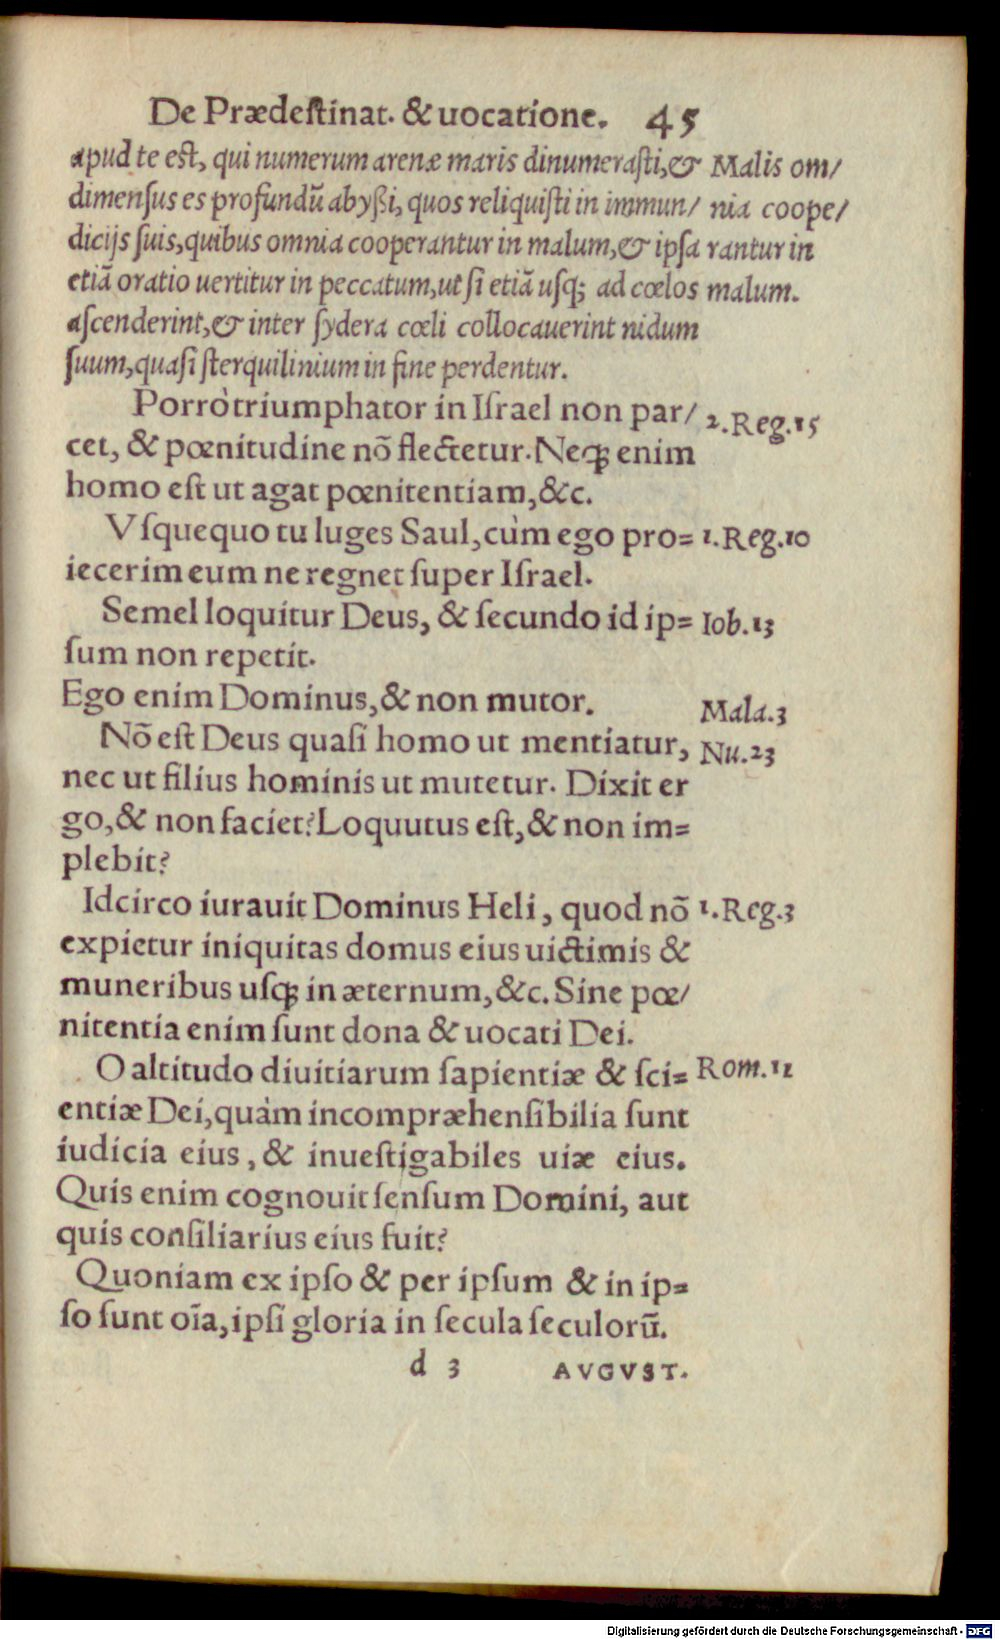 De Prædestinat. & uocatione. 45
apud te est, qui numerum arenæ maris dinumerasti,& Malis om/
dimensus es profundũ abyßi, quos reliquisti in immun/ nia coope/
dicijs suis,quibus omnia cooperantur in malum,& ipsa rantur in
etiã oratio uertitur in peccatum,ut si etiã usq; ad cœlos malum.
ascenderint,& inter sydera cœli collocauerint nidum
suum,quasi sterquilinium in fine perdentur.
Porrò triumphator in Israel non par/ 2.Reg.15
cet, & pœnitudine nõ flectetur. Neq; enim
homo est ut agat pœnitentiam,&c.
Vsquequo tu luges Saul,cùm ego pro= 1.Reg.10
iecerim eum ne regnet super Israel.
Semel loquitur Deus, & secundo id ip= Iob.13
sum non repetit.
Ego enim Dominus,& non mutor. Mala.3
Nõ est Deus quasi homo ut mentiatur, Nu.23
nec ut filius hominis ut mutetur. Dixit er
go,& non faciet? Loquutus est,& non im=
plebit?
Idcirco iurauit Dominus Heli, quod nõ 1.Reg.3
expietur iniquitas domus eius uictimis &
muneribus usq; in æternum,&c. Sine pœ/
nitentia enim sunt dona & uocati Dei.
O altitudo diuitiarum sapientiæ & sci= Rom.11
entiæ Dei,quàm incompræhensibilia sunt
iudicia eius, & inuestigabiles uiæ eius.
Quis enim cognouit sensum Domini, aut
quis consiliarius eius fuit?
Quoniam ex ipso & per ipsum & in ip=
so sunt oĩa,ipsi gloria in secula seculorũ.
d 3 AVGVST.
Digitalisierung gefördert durch die Deutsche Forschungsgemeinschaft - DFG